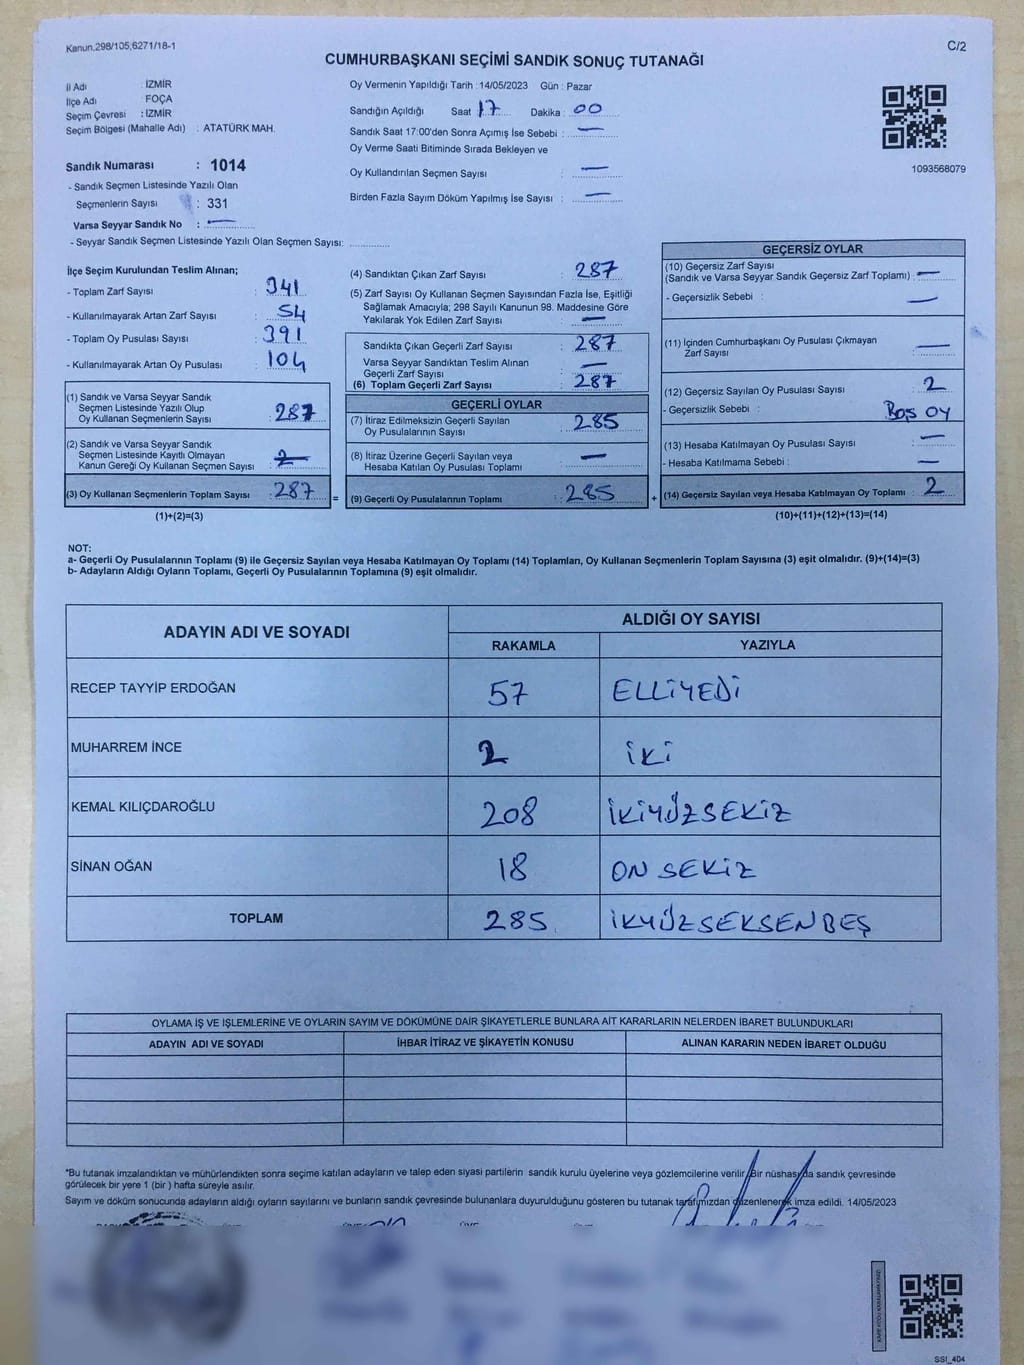 Kanun.298/105,6271/18-1
C/2
CUMHURBAŞKANI SEÇİMİ SANDIK SONUÇ TUTANAĞI
İl Adı : İZMİR
İlçe Adı : FOÇA
Seçim Çevresi : İZMİR
Seçim Bölgesi (Mahalle Adı) : ATATÜRK MAH.
Oy Vermenin Yapıldığı Tarih : 14/05/2023 Gün : Pazar
Sandığın Açıldığı Saat 17 Dakika : 00
Sandık Saat 17:00'den Sonra Açımış İse Sebebi : —
Oy Verme Saati Bitiminde Sırada Bekleyen ve
Oy Kullandırılan Seçmen Sayısı : —
Birden Fazla Sayım Döküm Yapılmış İse Sayısı : —
1093568079
Sandık Numarası : 1014
- Sandık Seçmen Listesinde Yazılı Olan
Seçmenlerin Sayısı : 331
Varsa Seyyar Sandık No : —
- Seyyar Sandık Seçmen Listesinde Yazılı Olan Seçmen Sayısı: ............
İlçe Seçim Kurulundan Teslim Alınan;
- Toplam Zarf Sayısı : 341
- Kullanılmayarak Artan Zarf Sayısı : 54
- Toplam Oy Pusulası Sayısı : 391
- Kullanılmayarak Artan Oy Pusulası : 104
(1) Sandık ve Varsa Seyyar Sandık
Seçmen Listesinde Yazılı Olup
Oy Kullanan Seçmenlerin Sayısı : 287
(2) Sandık ve Varsa Seyyar Sandık
Seçmen Listesinde Kayıtlı Olmayan
Kanun Gereği Oy Kullanan Seçmen Sayısı : —
(3) Oy Kullanan Seçmenlerin Toplam Sayısı : 287
(1)+(2)=(3)
(4) Sandıktan Çıkan Zarf Sayısı : 287
(5) Zarf Sayısı Oy Kullanan Seçmen Sayısından Fazla İse, Eşitliği
Sağlamak Amacıyla; 298 Sayılı Kanunun 98. Maddesine Göre
Yakılarak Yok Edilen Zarf Sayısı : —
Sandıkta Çıkan Geçerli Zarf Sayısı : 287
Varsa Seyyar Sandıktan Teslim Alınan
Geçerli Zarf Sayısı : —
(6) Toplam Geçerli Zarf Sayısı : 287
GEÇERLİ OYLAR
(7) İtiraz Edilmeksizin Geçerli Sayılan
Oy Pusulalarının Sayısı : 285
(8) İtiraz Üzerine Geçerli Sayılan veya
Hesaba Katılan Oy Pusulası Toplamı : —
= (9) Geçerli Oy Pusulalarının Toplamı : 285
GEÇERSİZ OYLAR
(10) Geçersiz Zarf Sayısı
(Sandık ve Varsa Seyyar Sandık Geçersiz Zarf Toplamı) : —
- Geçersizlik Sebebi : —
(11) İçinden Cumhurbaşkanı Oy Pusulası Çıkmayan
Zarf Sayısı : —
(12) Geçersiz Sayılan Oy Pusulası Sayısı : 2
- Geçersizlik Sebebi : Boş OY
(13) Hesaba Katılmayan Oy Pusulası Sayısı : —
- Hesaba Katılmama Sebebi : —
+ (14) Geçersiz Sayılan veya Hesaba Katılmayan Oy Toplamı : 2
(10)+(11)+(12)+(13)=(14)
NOT:
a- Geçerli Oy Pusulalarının Toplamı (9) ile Geçersiz Sayılan veya Hesaba Katılmayan Oy Toplamı (14) Toplamları, Oy Kullanan Seçmenlerin Toplam Sayısına (3) eşit olmalıdır. (9)+(14)=(3)
b- Adayların Aldığı Oyların Toplamı, Geçerli Oy Pusulalarının Toplamına (9) eşit olmalıdır.
ADAYIN ADI VE SOYADI ALDIĞI OY SAYISI
RAKAMLA YAZIYLA
RECEP TAYYİP ERDOĞAN 57 ELLİYEDİ
MUHARREM İNCE 2 İKİ
KEMAL KILIÇDAROĞLU 208 İKİYÜZSEKİZ
SİNAN OĞAN 18 ON SEKİZ
TOPLAM 285 İKİYÜZSEKSENBEŞ
OYLAMA İŞ VE İŞLEMLERİNE VE OYLARIN SAYIM VE DÖKÜMÜNE DAİR ŞİKAYETLERLE BUNLARA AİT KARARLARIN NELERDEN İBARET BULUNDUKLARI
ADAYIN ADI VE SOYADI İHBAR İTİRAZ VE ŞİKAYETİN KONUSU ALINAN KARARIN NEDEN İBARET OLDUĞU
*Bu tutanak imzalandıktan ve mühürlendikten sonra seçime katılan adayların ve talep eden siyasi partilerin sandık kurulu üyelerine veya gözlemcilerine verilir. Bir nüshası da sandık çevresinde
görülecek bir yere 1 (bir ) hafta süreyle asılır.
Sayım ve döküm sonucunda adayların aldığı oyların sayılarını ve bunların sandık çevresinde bulunanlara duyurulduğunu gösteren bu tutanak tarafımızdan düzenlenerek imza edildi. 14/05/2023
SSI_404